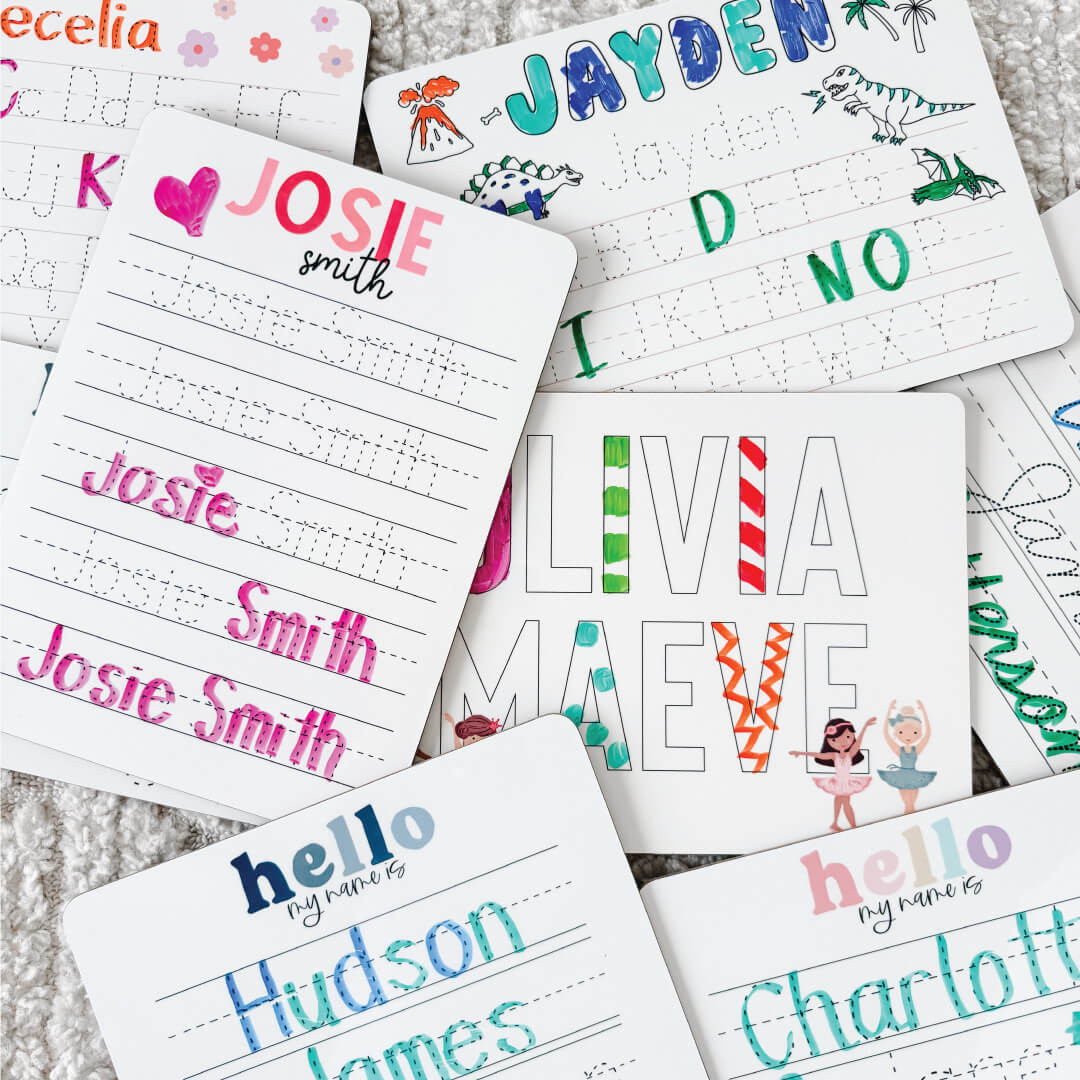 ecelia
K
JAYDEN
Jayden
A B C D E F G
I J K L M N O P
T U V W X Y Z
JOSIE
smith
Josie Smith
Josie Smith
Josie Smith
Josie Smith
Josie Smith
OLIVIA
MAEVE
hello
my name is
Hudson
James
hello
my name is
Charlott